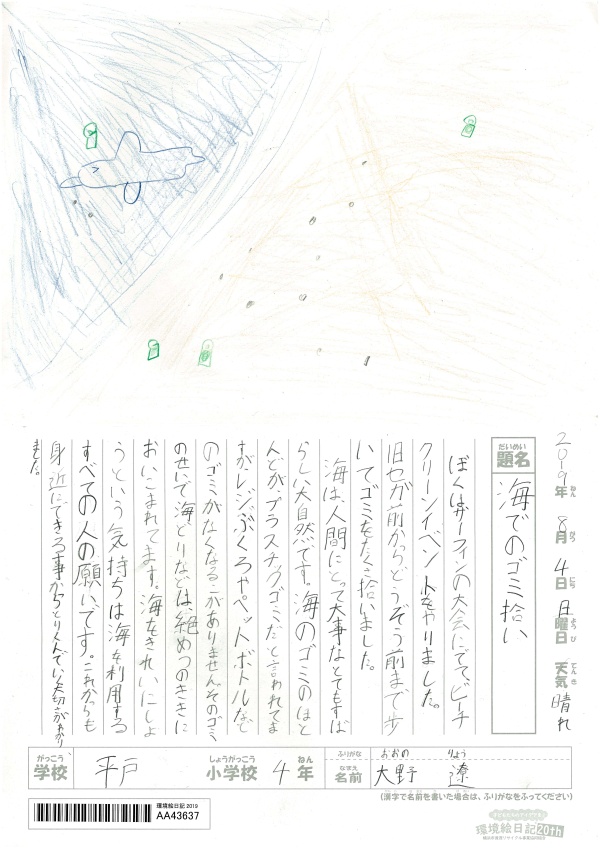 2019年 8月 4日 日曜日 天気 晴れ
ねん がつ にち ようび てんき
だいめい
題名
海でのゴミ拾い
ぼくはサーフィンの大会にでて、ビーチ
クリーンイベントをやりました。
旧セが前からどうぞう前まで歩
いてゴミをたくさん拾いました。
海は、人間にとって大事なとてもすば
らしい大自然です。海のゴミのほと
んどが、プラスチックゴミだと言われてま
すがレジぶくろやペットボトルなど
のゴミがなくなることがありません。そのゴミ
のせいで、海どりなどは、絶めつのききに
おいこまれてます。海をきれいにしよ
うという気持ちは海を利用する
すべての人の願いです。これからも
身近にできる事からとりくんでいく
ました。
がっこう
学校
平戸
しょうがっこう
小学校
4
ねん
年
ふりがな
おおの りょう
なまえ
名前
大野 遼
(漢字で名前を書いた場合は、ふりがなをふってください)
環境絵日記 2019
AA43637
環境絵日記20th